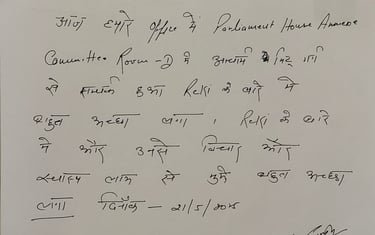 आज हमारे Office में Parliament House Annexe
Committee Room-D में आचार्य जी
से सम्पर्क हुआ Reiki के बारे में
बहुत अच्छा लगा । Reiki के बारे
में और उनसे विचार और
स्वास्थ्य लाभ से मुझे बहुत अच्छा
लगा दिनाँक - 21/5/